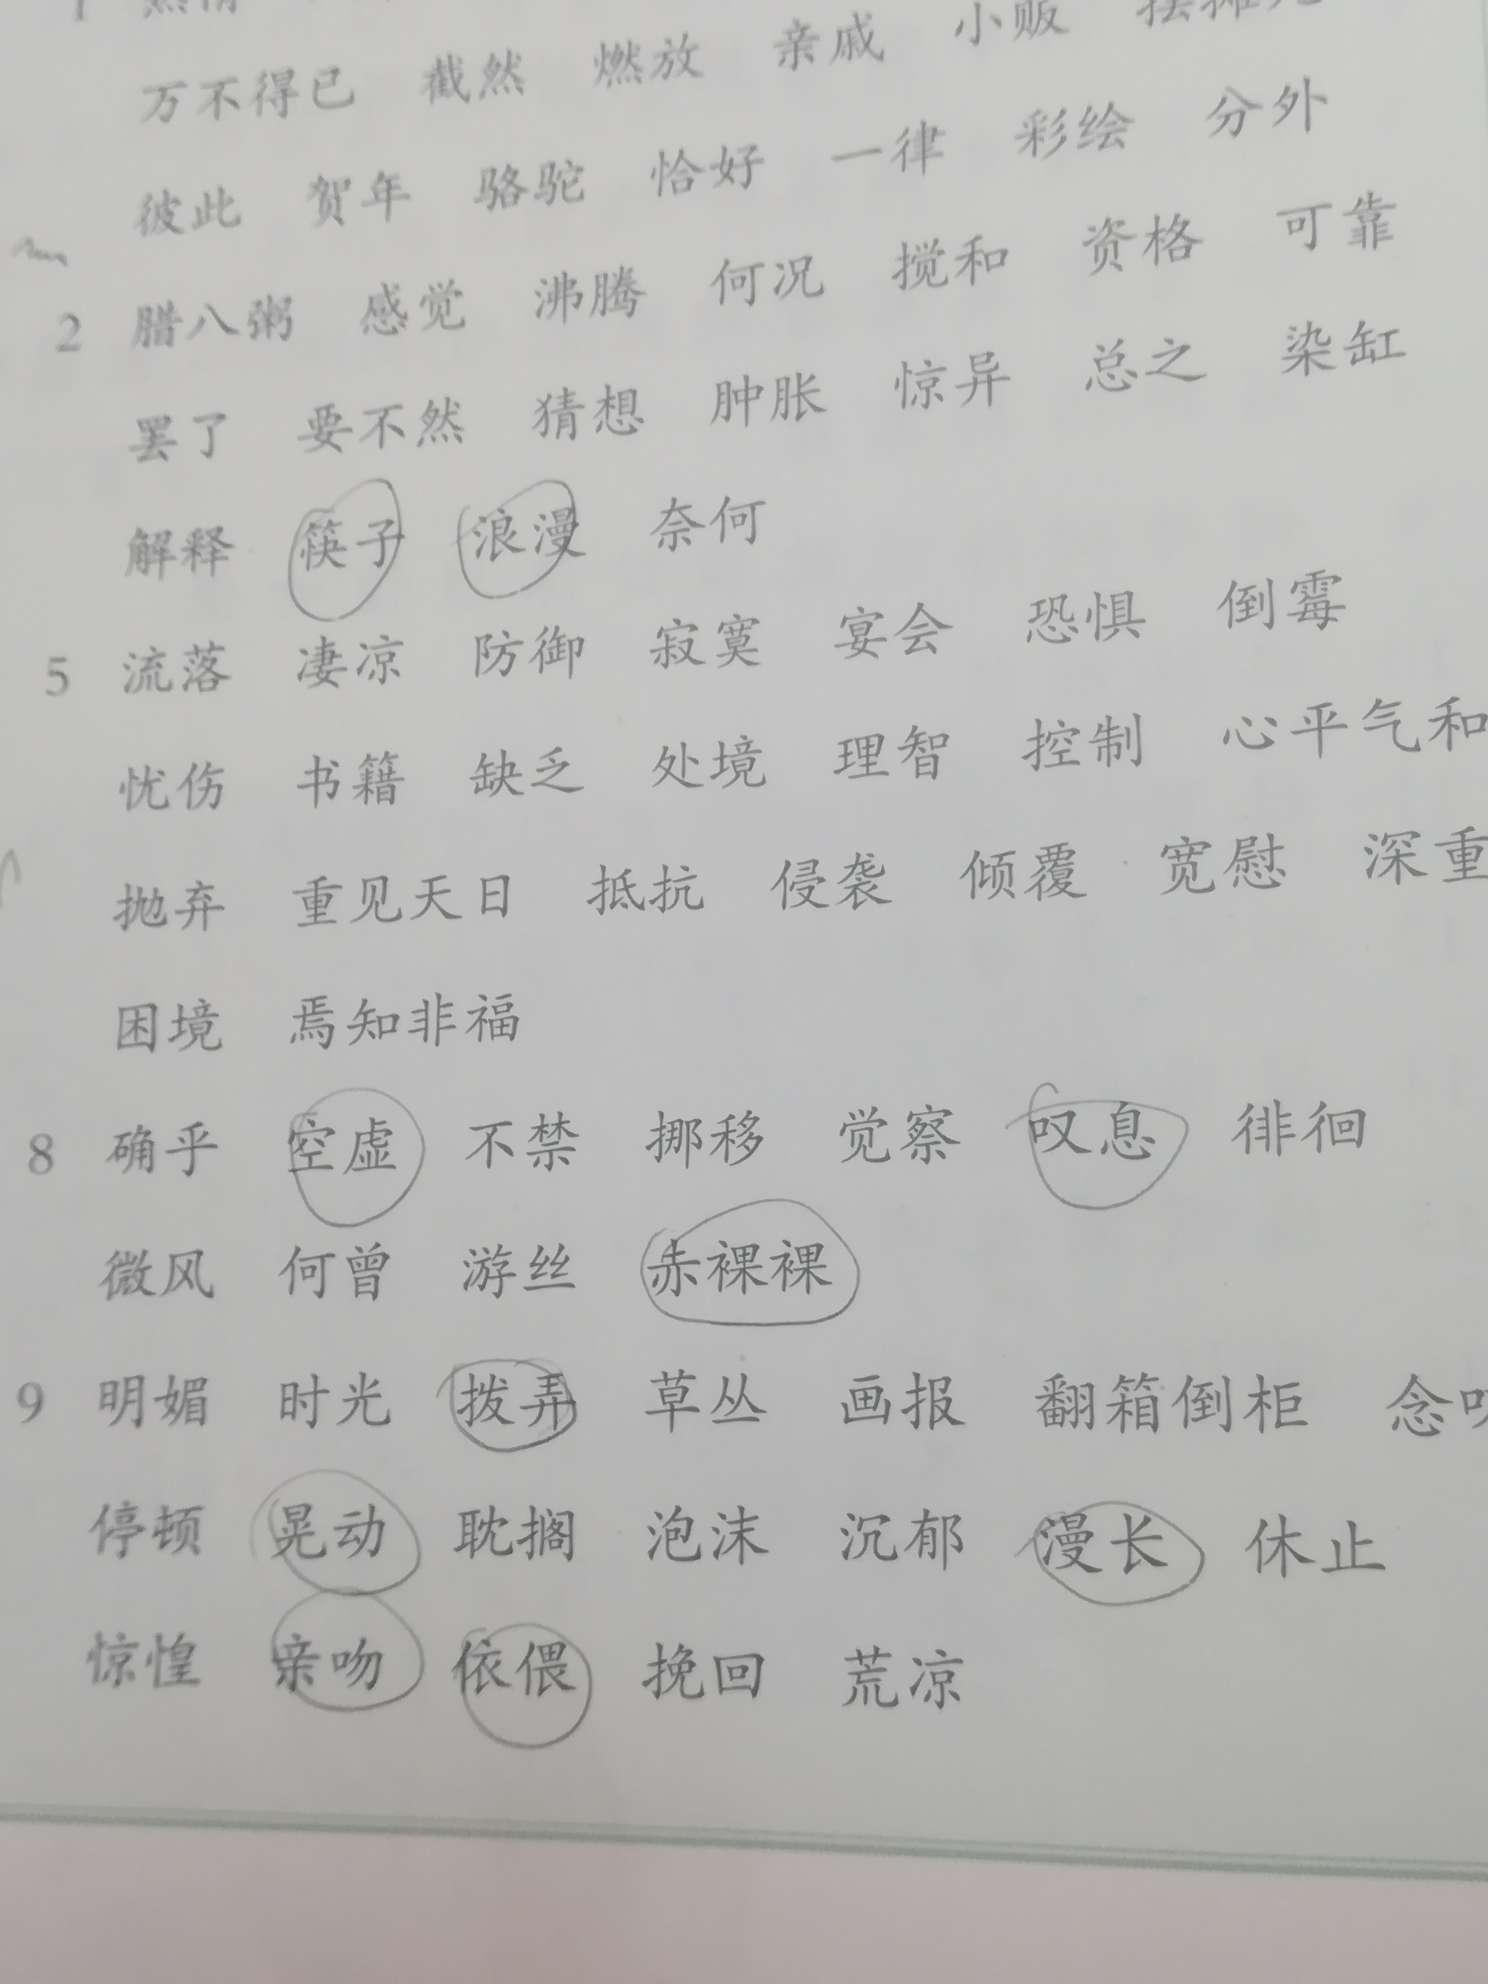 1
万不得已 截然 燃放 亲戚 小贩
彼此 贺年 骆驼 恰好 一律 彩绘 分外
2 腊八粥 感觉 沸腾 何况 搅和 资格 可靠
罢了 要不然 猜想 肿胀 惊异 总之 染缸
解释 筷子 浪漫 奈何
5 流落 凄凉 防御 寂寞 宴会 恐惧 倒霉
忧伤 书籍 缺乏 处境 理智 控制 心平气和
抛弃 重见天日 抵抗 侵袭 倾覆 宽慰 深重
困境 焉知非福
8 确乎 空虚 不禁 挪移 觉察 叹息 徘徊
微风 何曾 游丝 赤裸裸
9 明媚 时光 拨弄 草丛 画报 翻箱倒柜 念
停顿 晃动 耽搁 泡沫 沉郁 漫长 休止
惊惶 亲吻 依偎 挽回 荒凉